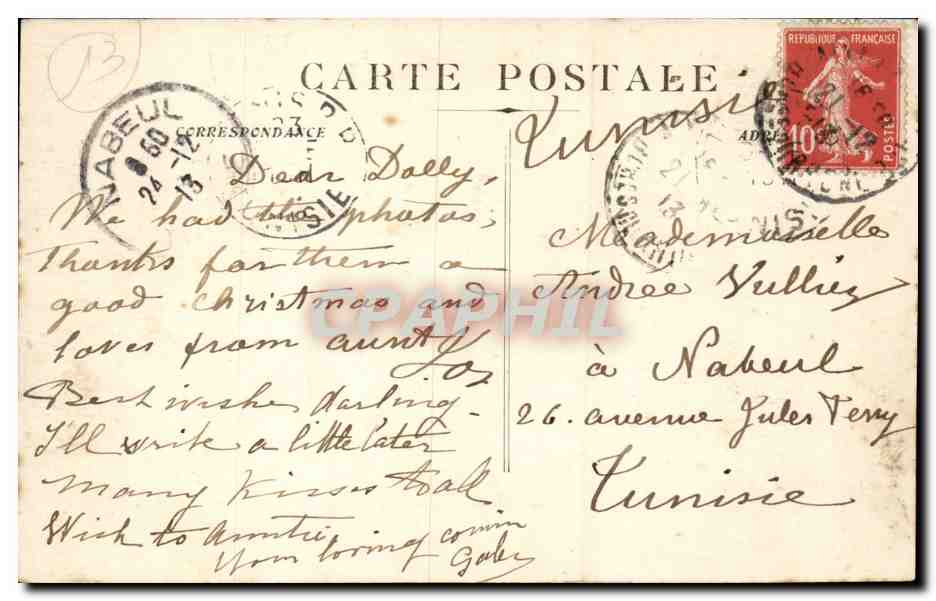 13
CARTE POSTALE
CORRESPONDANCE
ADRESSE
REPUBLIQUE FRANÇAISE
10
POSTES
NABEUL
8 50
24 -12
13
Tunisie
Dear Dolly,
We had the photos,
Thanks for them a
good christmas and
loves from aunt
Best wishes darling-
I'll write a little later
Many Kisses to all
Wish to Auntie
Your loving cousin
Gaby
Mademoiselle
Andree Vulliez
à Nabeul
26. avenue Jules Ferry
Tunisie
CPAPHIL